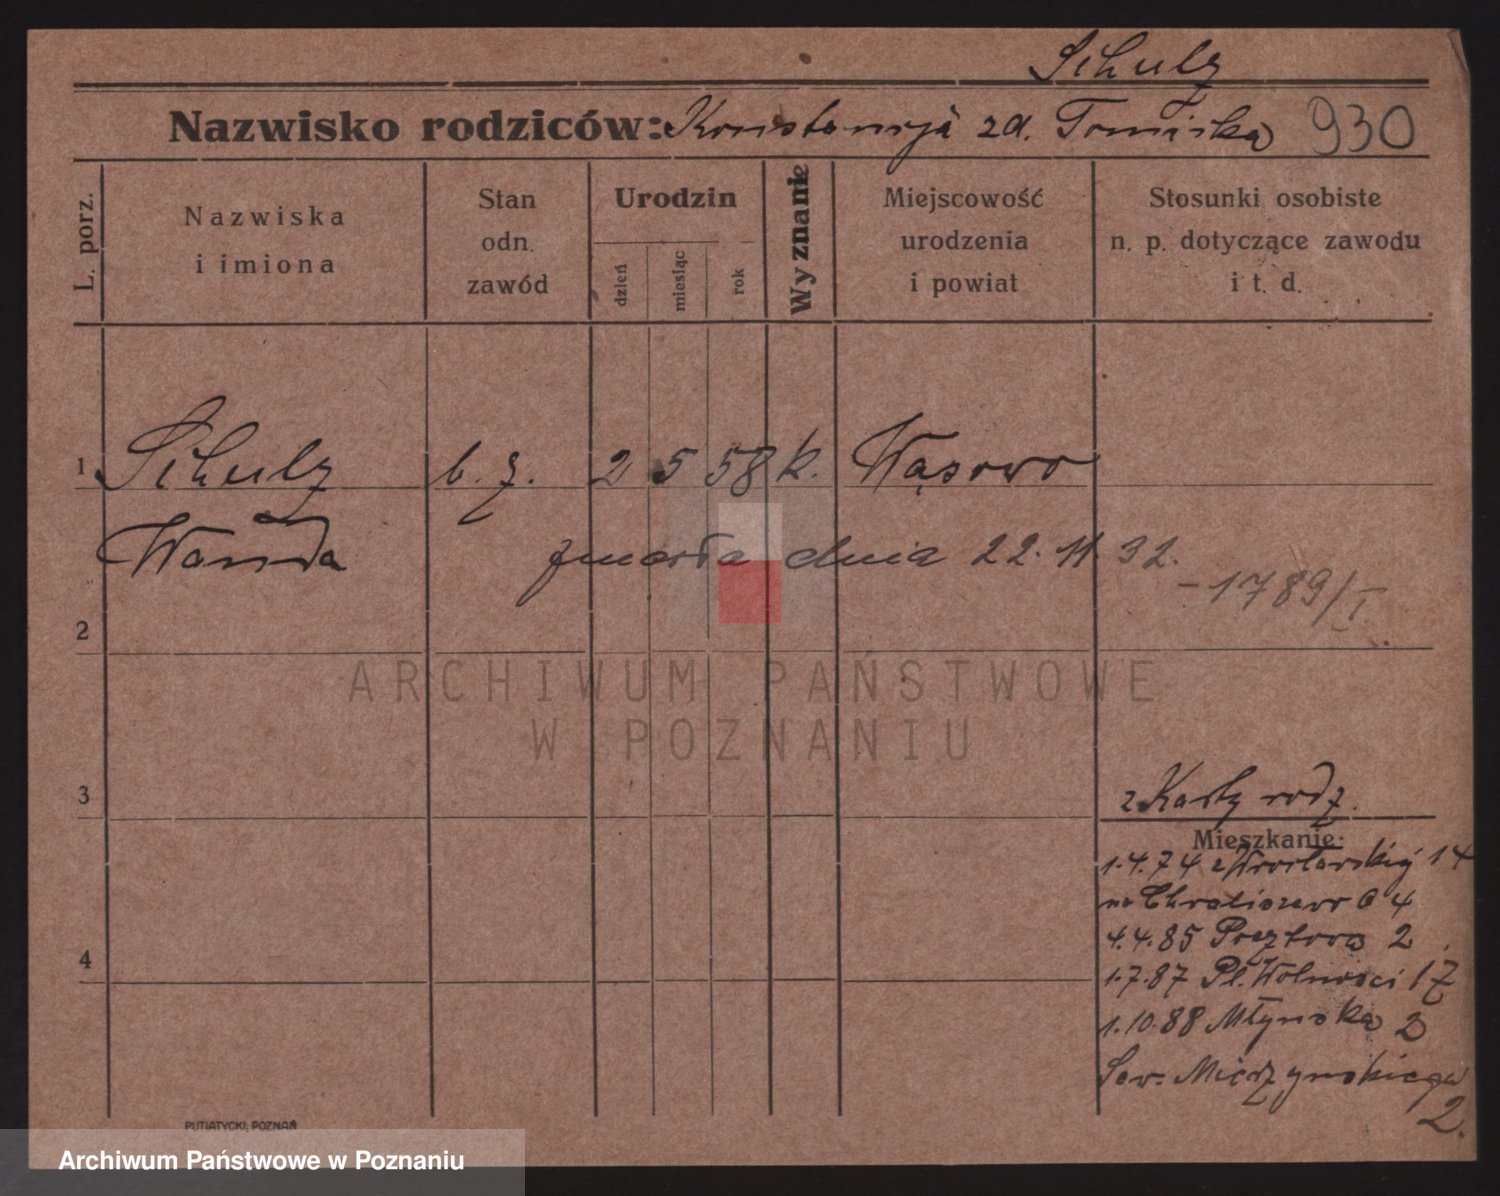 Schulz
Nazwisko rodziców: Konstancja zd. Tomiska 930
L. porz.
Nazwiska
i imiona
Stan
odn.
zawód
Urodzin
dzień
miesiąc
rok
Wyznanie
Miejscowość
urodzenia
i powiat
Stosunki osobiste
n. p. dotyczące zawodu
i t. d.
1 Schulz b. z. 2 5 58 k. Wąsowo
Wanda zmarła dnia 22. 11. 32.
-1789/I.
2
ARCHIWUM PAŃSTWOWE
W POZNANIU
3
z Karty rodz.
Mieszkanie:
1.4.74 z Wrocławskiej 14
na Chwaliszewo 64
4.4.85 Pocztowa 2
1.7.87 Pl. Wolności 17
4
1.10.88 Młyńska 2
Sew. Mielżyńskiego
2.
PUTIATYCKI, POZNAŃ
Archiwum Państwowe w Poznaniu